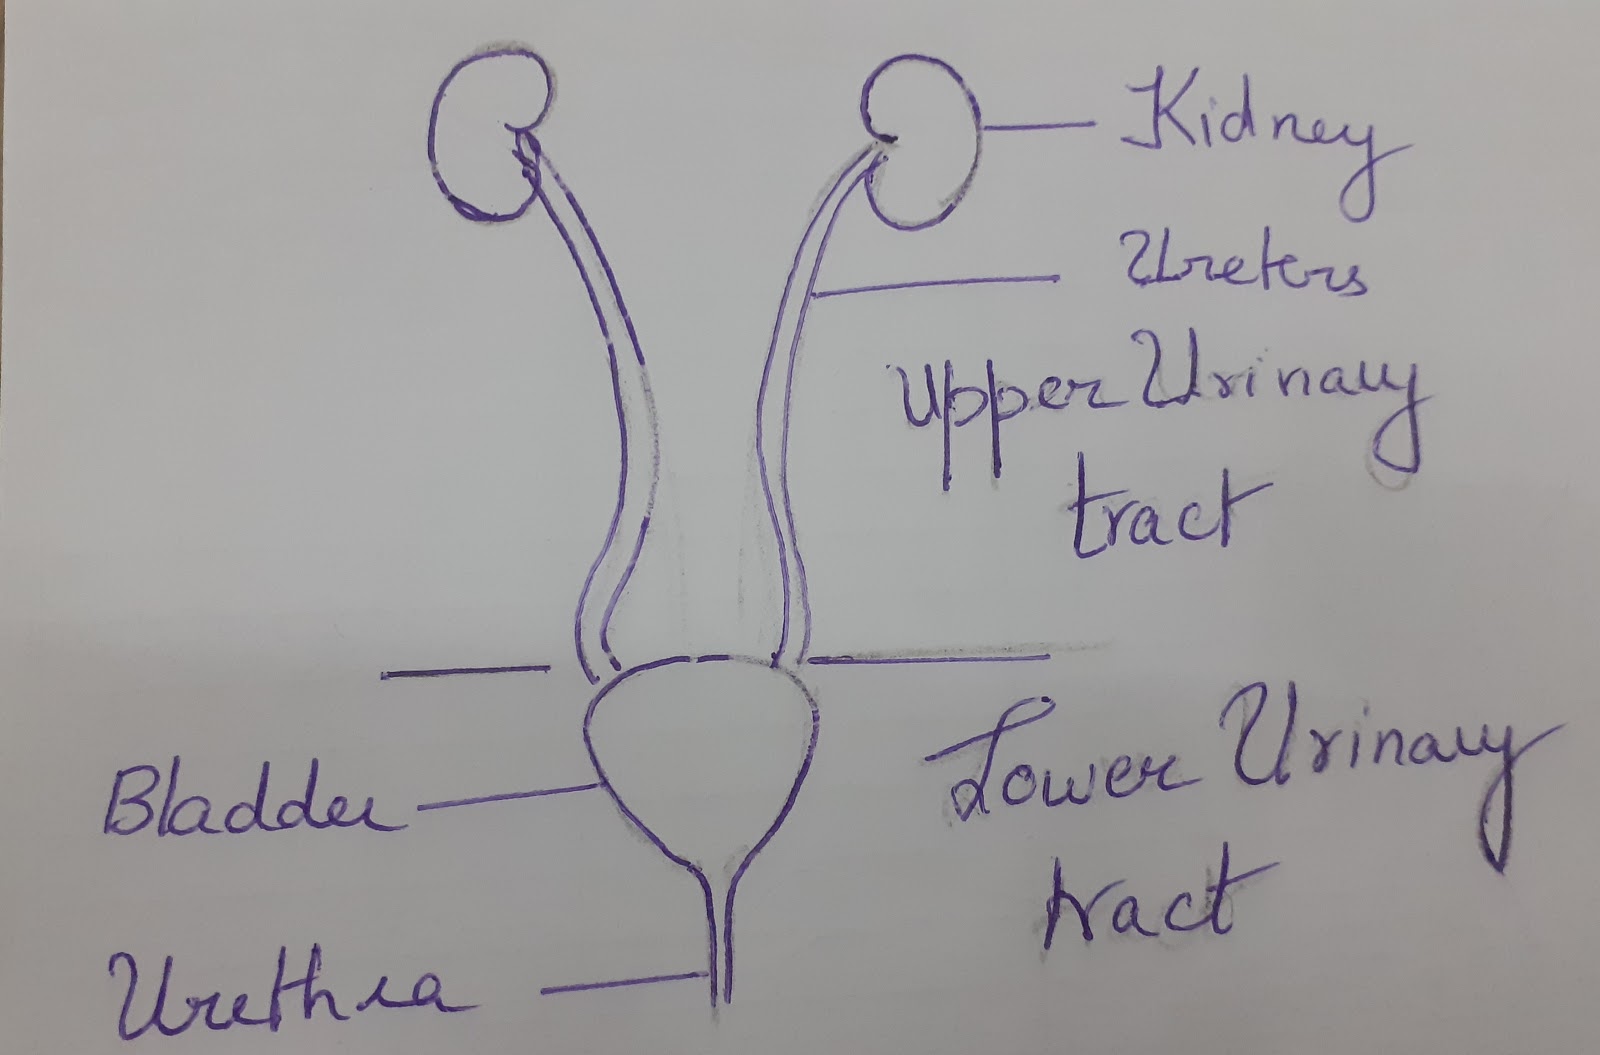 Kidney
Ureters
Upper Urinary
tract
Bladder
Lower Urinary
tract
Urethra